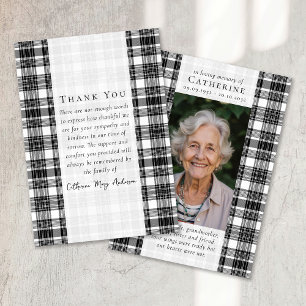 THANK YOU
There are not enough words
to express how thankful we
are for your sympathy and
kindness in our time of
sorrow. The support and
comfort you provided will
always be remembered by
the family of
Catherine Mary Anderson
in loving memory of
CATHERINE
grandmother,
and friend
wings were ready but
our hearts were not.